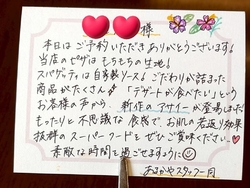 様
本日はご予約いただきありがとうございます!
当店のピザはもちもちの生地!
スパゲティは自家製ソース!こだわりが詰まった
商品がたくさん 「デザートが食べたい」という
お客様の声から、新作のアサイーが登場しました
もったりと不思議な食感で、お肌の若返り効果
抜群のスーパーフードをぜひご賞味ください。
素敵な時間を過ごせますように
スタッフ一同